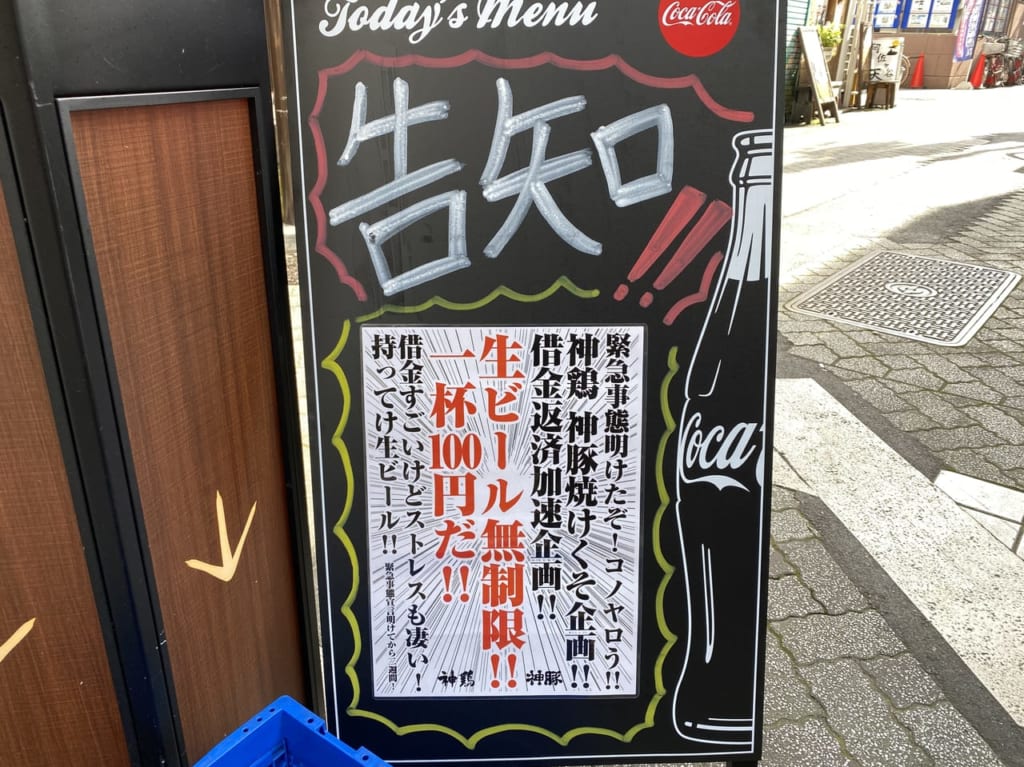 Today's Menu
Coca-Cola
告知!!
緊急事態明けたぞ!コノヤロう!!
神鶏 神豚焼けくそ企画!!
借金返済加速企画!!
生ビール無制限!!
一杯100円だ!!
借金すごいけどストレスも凄い!
持ってけ生ビール!!
緊急事態宣言明けてから三週間!
神鶏
神豚
Coca